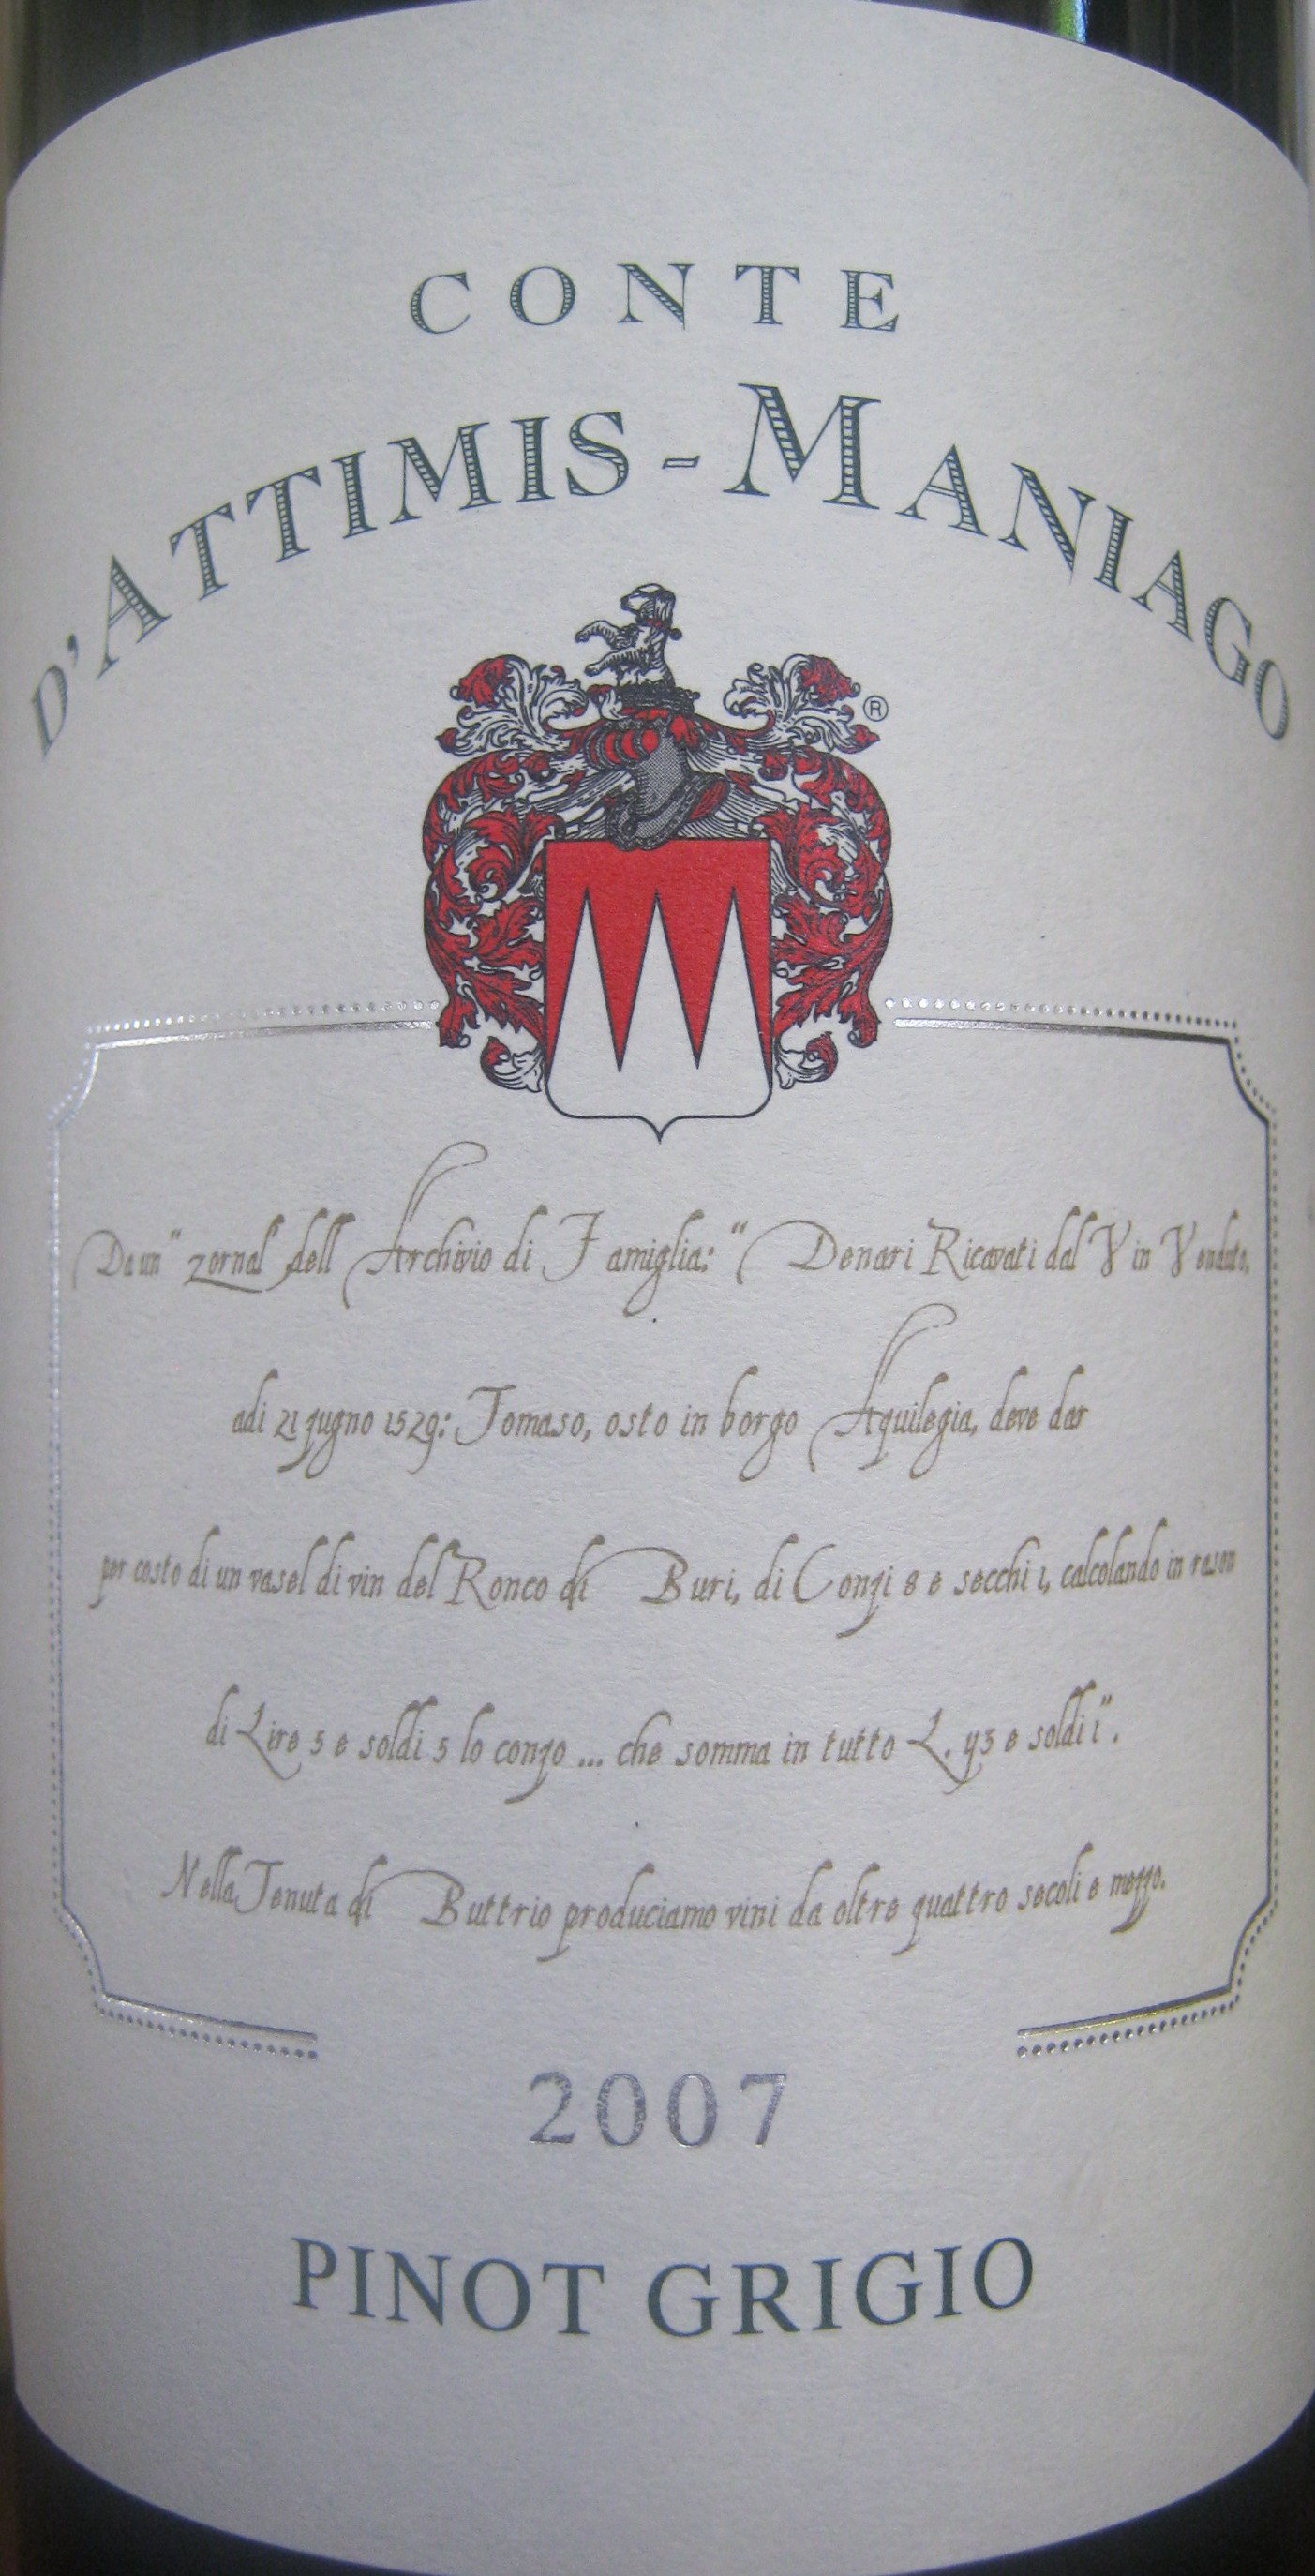 CONTE
D'ATTIMIS-MANIAGO
®
Da un "zornal" dell Archivio di Famiglia: "Denari Ricavati dal Vin Venduto,
adi 21 zugno 1529: Tomaso, osto in borgo Aquilegia, deve dar
per costo di un vasel di vin del Ronco di Buri, di Conzi 8 e secchi 1, calcolando in rason
di Lire 5 e soldi 5 lo conzo ... che somma in tutto L. 43 e soldi 1".
Nella Tenuta di Buttrio produciamo vini da oltre quattro secoli e mezzo.
2007
PINOT GRIGIO